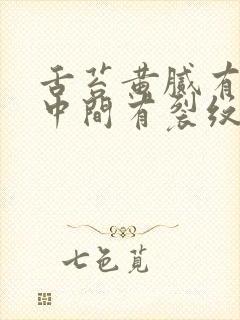 舌苔黄腻有
中间有裂纹
七色苋